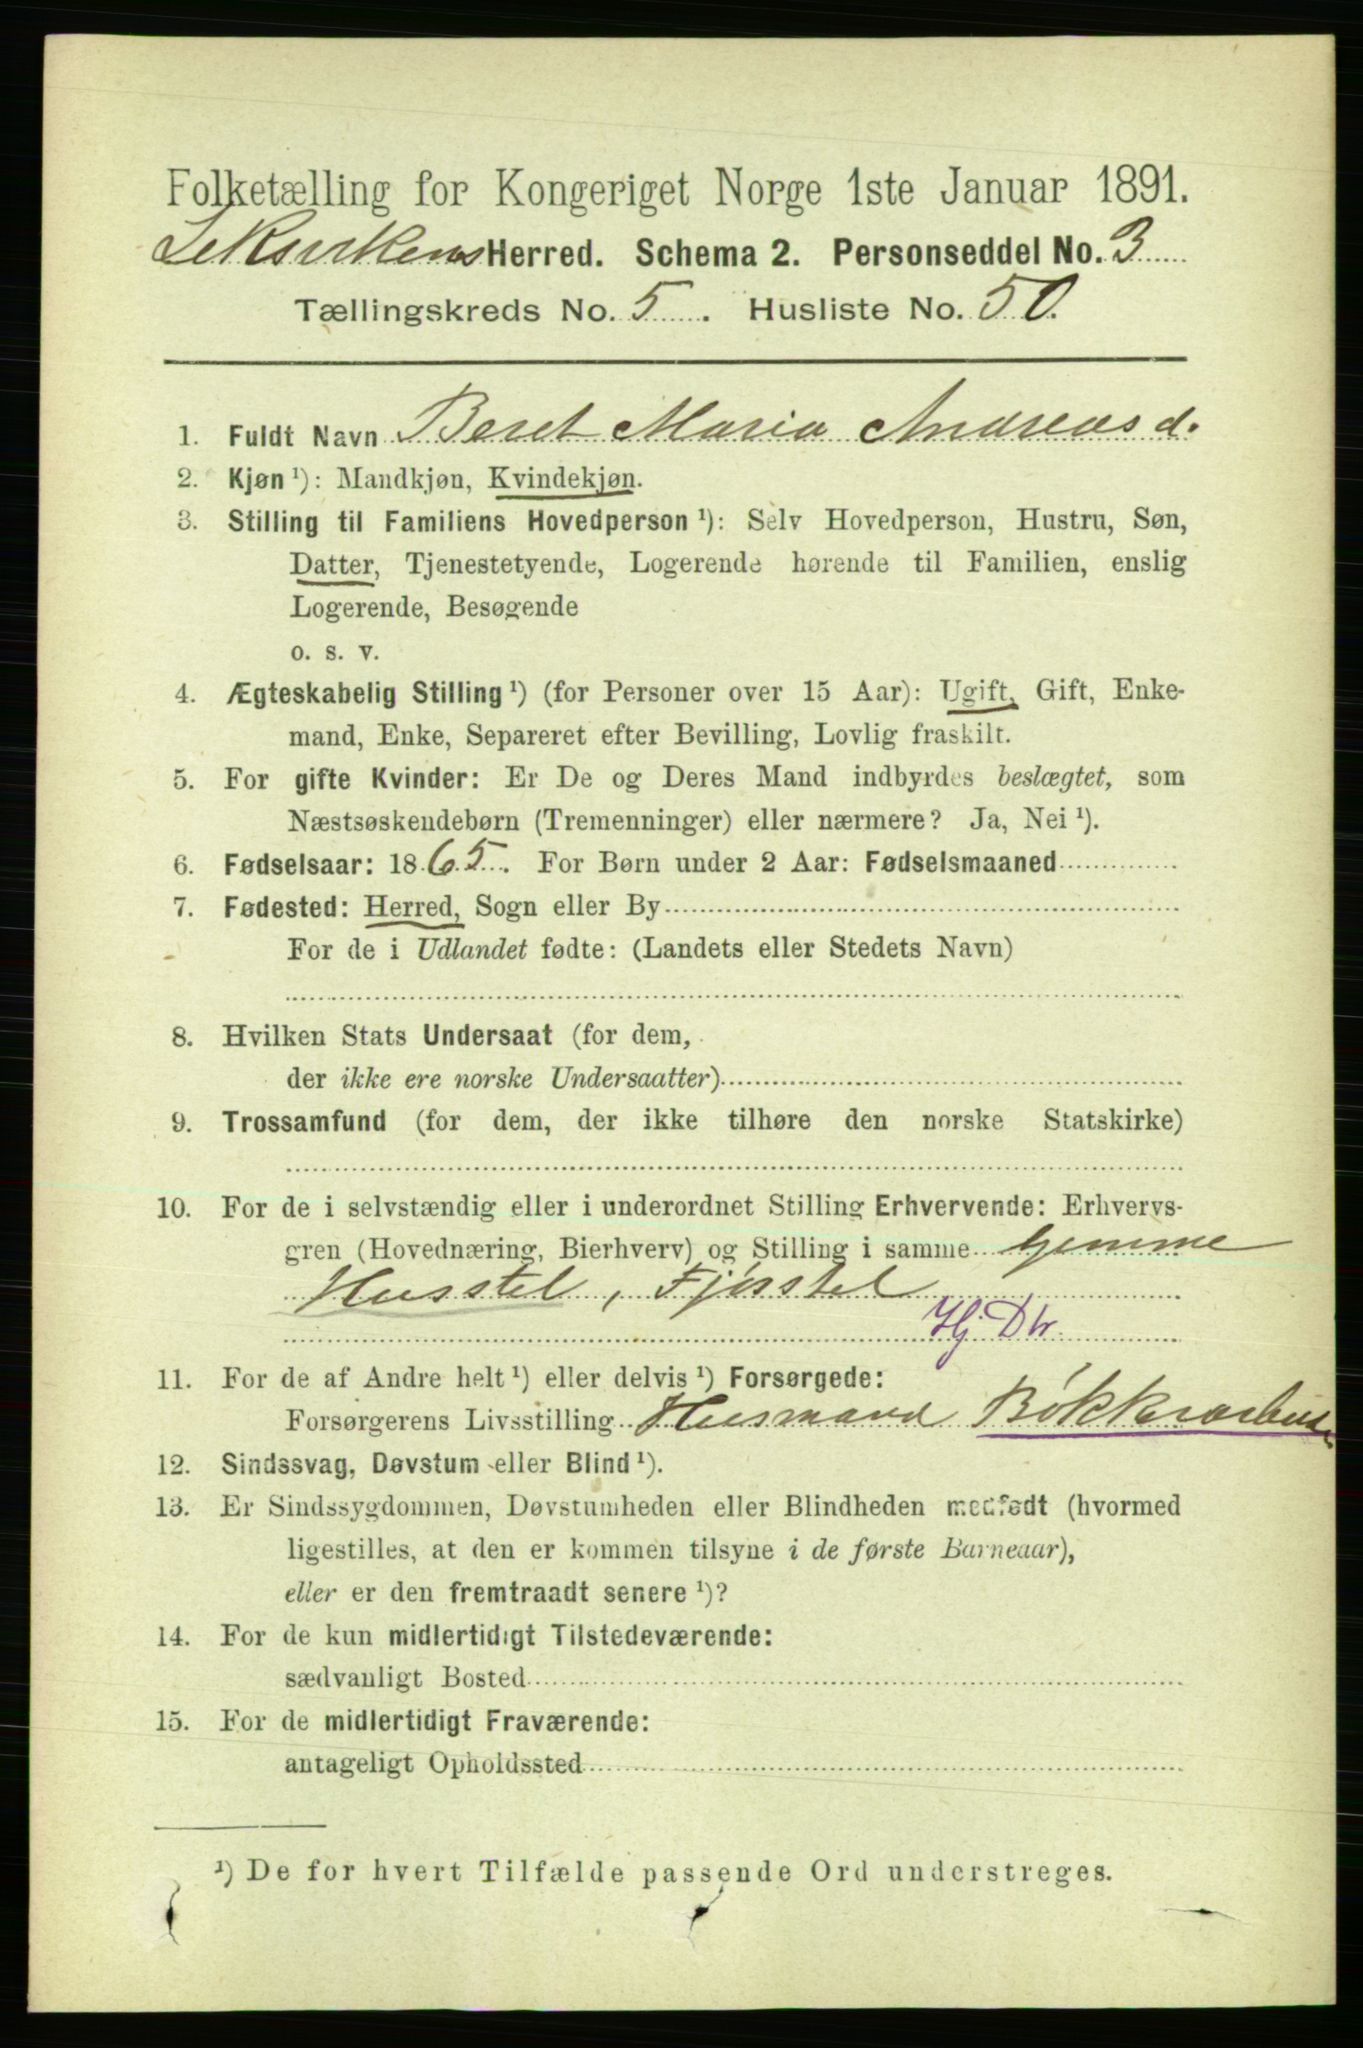 Folketælling for Kongeriget Norge 1ste Januar 1891.
Leksvikens Herred. Schema 2. Personseddel No. 3
Tællingskreds No. 5. Husliste No. 50.
1. Fuldt Navn Beret Maria Andreasd.
2. Kjøn ¹): Mandkjøn, Kvindekjøn.
3. Stilling til Familiens Hovedperson ¹): Selv Hovedperson, Hustru, Søn,
Datter, Tjenestetyende, Logerende hørende til Familien, enslig
Logerende, Besøgende
o. s. v.
4. Ægteskabelig Stilling ¹) (for Personer over 15 Aar): Ugift, Gift, Enke-
mand, Enke, Separeret efter Bevilling, Lovlig fraskilt.
5. For gifte Kvinder: Er De og Deres Mand indbyrdes beslægtet, som
Næstsøskendebørn (Tremenninger) eller nærmere? Ja, Nei ¹).
6. Fødselsaar: 1865. For Børn under 2 Aar: Fødselsmaaned
7. Fødested: Herred, Sogn eller By
For de i Udlandet fødte: (Landets eller Stedets Navn)
8. Hvilken Stats Undersaat (for dem,
der ikke ere norske Undersaatter)
9. Trossamfund (for dem, der ikke tilhøre den norske Statskirke)
10. For de i selvstændig eller i underordnet Stilling Erhvervende: Erhvervs-
gren (Hovednæring, Bierhverv) og Stilling i samme hjemme
Husstel, Fjøsstel
Hj. Dtr.
11. For de af Andre helt ¹) eller delvis ¹) Forsørgede:
Forsørgerens Livsstilling Husmand Bøkkerarbeide
12. Sindssvag, Døvstum eller Blind ¹).
13. Er Sindssygdommen, Døvstumheden eller Blindheden medfødt (hvormed
ligestilles, at den er kommen tilsyne i de første Barneaar),
eller er den fremtraadt senere ¹)?
14. For de kun midlertidigt Tilstedeværende:
sædvanligt Bosted
15. For de midlertidigt Fraværende:
antageligt Opholdssted
¹) De for hvert Tilfælde passende Ord understreges.